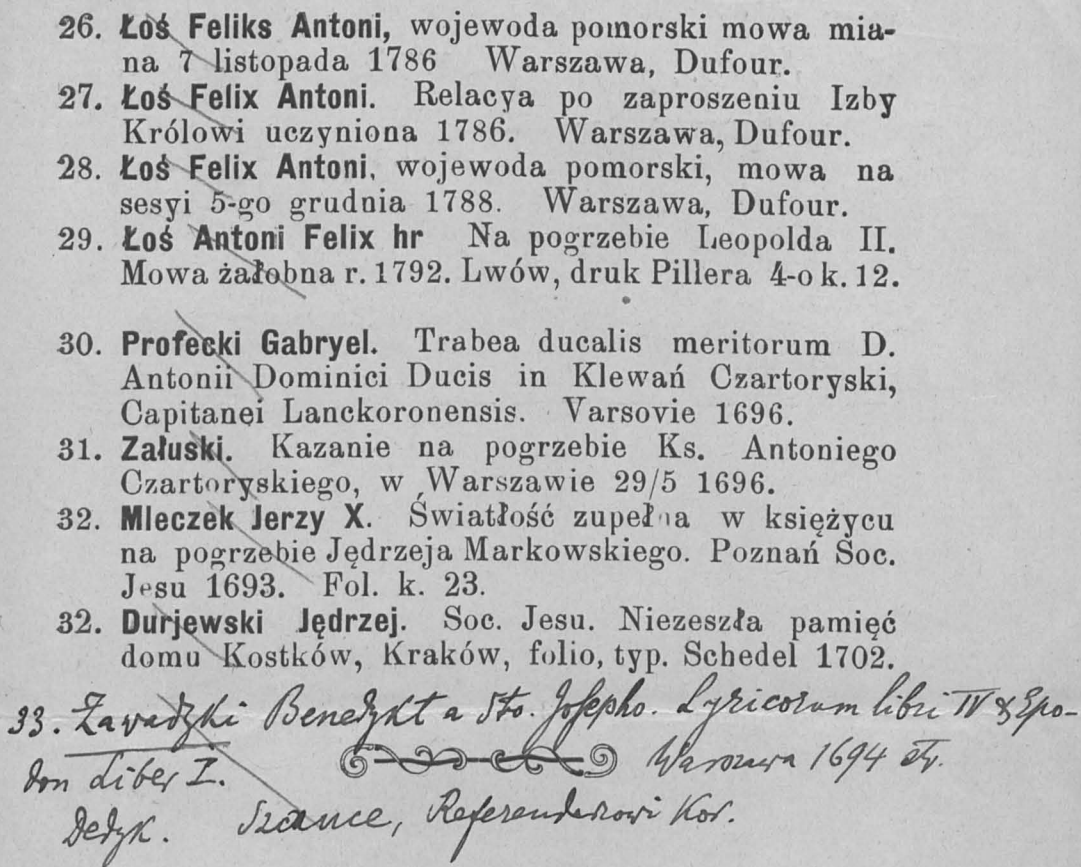 26. Łoś Feliks Antoni, wojewoda pomorski mowa mia-
na 7 listopada 1786 Warszawa, Dufour.
27. Łoś Felix Antoni. Relacya po zaproszeniu Izby
Królowi uczyniona 1786. Warszawa, Dufour.
28. Łoś Felix Antoni, wojewoda pomorski, mowa na
sesyi 5-go grudnia 1788. Warszawa, Dufour.
29. Łoś Antoni Felix hr Na pogrzebie Leopolda II.
Mowa żałobna r. 1792. Lwów, druk Pillera 4-o k. 12.
30. Profecki Gabryel. Trabea ducalis meritorum D.
Antonii Dominici Ducis in Klewań Czartoryski,
Capitanei Lanckoronensis. Varsovie 1696.
31. Załuski. Kazanie na pogrzebie Ks. Antoniego
Czartoryskiego, w Warszawie 29/5 1696.
32. Mleczek Jerzy X. Światłość zupełna w księżycu
na pogrzebie Jędrzeja Markowskiego. Poznań Soc.
Jesu 1693. Fol. k. 23.
32. Durjewski Jędrzej. Soc. Jesu. Niezeszła pamięć
domu Kostków, Kraków, folio, typ. Schedel 1702.
33. Zawadzki Benedykt a Sto. Josepho. Lyricorum libri IV & Epo-
don Liber I. Warszawa 1694
Dedyk. Referendarzowi Kor.